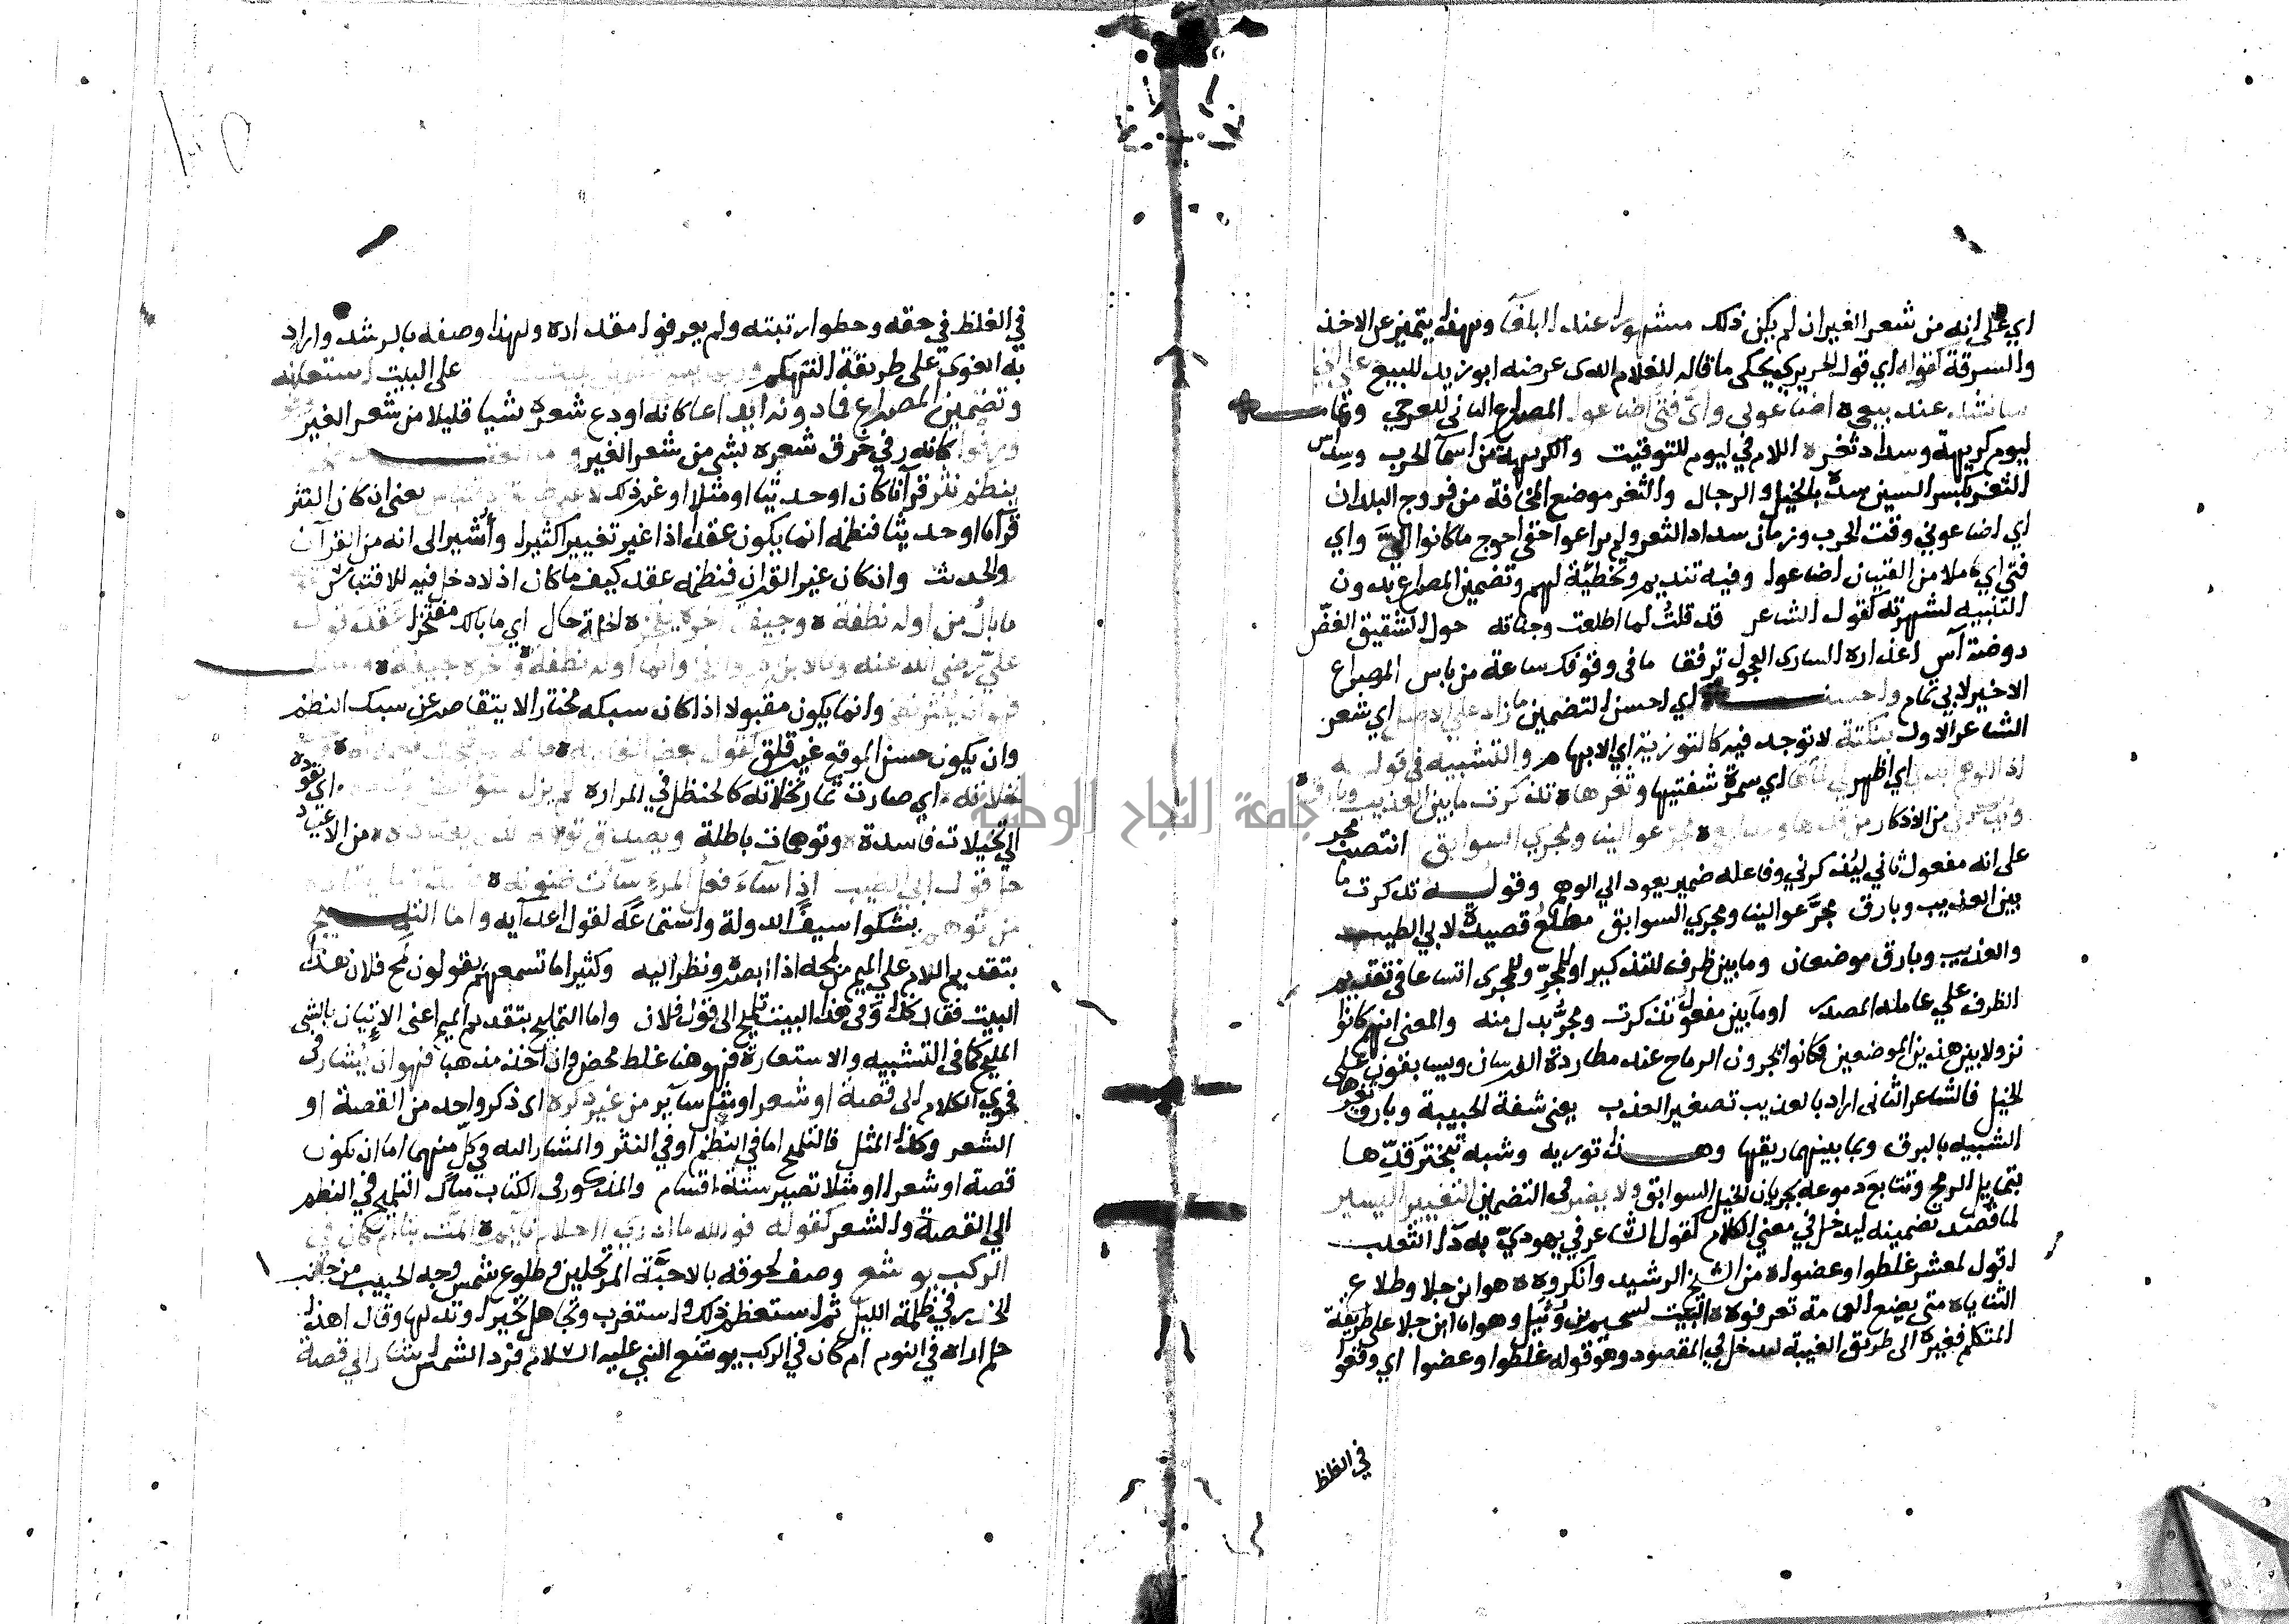 اي على انه من شعر الغير ان لم يكن ذلك مشهورا عند البلغآ وبهذا يتميز عن الاخذ
والسرقة كقوله اي قول الحريري يحكي ما قاله الغلام الذى عرضه ابو زيد للبيع على اني
سانشد عند بيعي ه اضاعوني واى فتى اضاعوا المصراع الثانى للعرجي وتمامـــه
ليوم كريهة وسداد ثغر ه اللام في ليوم للتوقيت والكريهة من اسمآ الحرب وسداد
الثغر بكسر السين سده بالخيل والرجال والثغر موضع المخافة من فروج البلدان
اي اضاعوني وقت الحرب وزمان سداد الثغر ولم يراعوا حقى احوج ما كانوا اليّ واي
فتى اي كاملا من الفتيان اضاعوا وفيه تنديم وتخطئة لهم وتضمين المصراع بدون
التنبيه لشهرته كقول الشاعر قد قلت لما اطلعت وجناته حول الشقيق الغضّ
روضة آس اعذاره السارى العجول ترفقا ما فى وقوفك ساعة من باس المصراع
الاخير لابي تمام واحســـنه اي احسن التضمين ما زاد على الاصل اي شعر
الشاعر الاول بنكتة لا توجد فيه كالتورية اي الايهام والتشبيه فى قوله
اذا الوهم ابدى اي اظهر لي لماها اي سمرة شفتيها وثغرها ه تذكرت ما بين العذيب وبارق ه
ويذكرني من الاذكار من قدها ومدامعي ه مجر عوالينا ومجرى السوابق انتصب مجر
على انه مفعول ثاني ليذكرني وفاعله ضمير يعود الى الوهم وقولـــه تذكرت ما
بين العذيب وبارق مجرّ عوالينا ومجرى السوابق مطلع قصيدة لابي الطيب
والعذيب وبارق موضعان وما بين ظرف للتذكير او للمجرّ وللمجرى اتساعا فى تقديم
الظرف على عامله المصدر او ما بين مفعول تذكرت ومجرّ بدل منه والمعنى انهم كانوا
نزولا بين هذين الموضعين فكانوا يجرون الرماح عند مطاردة الفرسان ويسابقون على
الخيل فالشاعر الثانى اراد بالعذيب تصغير العذب يعنى شفة الحبيبة وبارق ثغرها
الشبيه بالبرق وبما بينهما ريقها وهـــذا تورية وشبه تبختر قدّها
بتمايل الرمح وتتابع دموعه بجريان الخيل السوابق ولا يضر فى التضمين التغيير اليسير
لما قصد تضمينه ليدخل في معنى الكلام كقول الشاعر في يهوديّ به دآ الثعلب
اقول لمعشر غلطوا وعضوا ه من الشيخ الرشيد وانكروه ه هو ابن جلا وطلاع
الثنايا ه متى يضع العمامة تعرفوه ه البيت لسحيم بن وثيل وهو انا ابن جلا على طريقة
المتكلم فغيره الى طريق الغيبة ليدخل في المقصود وهو قوله غلطوا وعضوا اي وقعوا
في الغلط
في الغلط في حقه وحطوا رتبته ولم يعرفوا مقداره ولهذا وصفه بالرشد واراد
به الغوى على طريقة التهكم وربما سمي تضمين البيت فما زاد على البيت استعانة
وتضمين المصراع فما دونه ايداعا كانه اودع شعره شيا قليلا من شعر الغير
ورفوا كانه رفي خرق شعره بشي من شعر الغير واما العقـــد
ينظم نثر قرآنا كان او حديثا او مثلا او غير ذلك لا على طريق الاقتباس يعنى ان كان النثر
قرآنا او حديثا فنظمه انما يكون عقدا اذا غير تغييرا كثيرا وأشير الى انه من القرآن
والحديث وان كان غير القران فنظمه عقد كيف ما كان اذ لا دخل فيه للاقتباس
ما بال من اوله نطفة ه وجيفة اخره يفخر ه الجملة حال اي ما بالك مفتخرا عقد قول
عليّ رضى الله عنه وما لابن ادم والفخر وانما اوله نطفة وآخره جيفة ه
فهو ان ينثر نظم وانما يكون مقبولا اذا كان سبكه مختارا لا يتقاصر عن سبك النظم
وان يكون حسن الموقع غير قلق كقول بعض المغاربة ه فانه لما قبحت فعلاته ه وحنظلت
نخلاته ه اي صارت ثمار نخلاته كالحنظل في المرارة لم يزل سو الظن يقتاده ه اي يقوده
الى تخيلات فاسدة ه وتوهمات باطلة ويصدق توهمه الذى يعتاده ه من الاعتياد
حل قول ابى الطيب اذا سآء فعل المرء سآت ظنونه ه وصدق ما يعتاده
من توهم يشكوا سيف الدولة واستماعه لقول اعدآيه واما التلميـــح
بتقديم اللام على الميم من لمحه اذا ابصره ونظر اليه وكثيرا ما تسمعهم يقولون لمح فلان هذا
البيت فقال كذا وفى هذا البيت تلميح الى قول فلان واما التمليح بتقديم الميم اعنى الاتيان بالشي
المليح كما فى التشبيه والاستعارة فهو هنا غلط محض وان اخذ مذهبا فهو ان يشار فى
فحوى الكلام الى قصة او شعر او مثل ساير من غير ذكره اى ذكر واحد من القصة او
الشعر وكذا المثل فالتلميح اما في النظم او في النثر والمشار اليه في كلّ منهما اما ان يكون
قصة او شعرا او مثلا تصير ستة اقسام والمذكور فى الكتاب مثال التلميح في النظم
الى القصة والشعر كقوله فو الله ما ادرى أاحلام نايم ه المّت بنا ام كان فى
الركب يوشع وصف لحوقه بالاحبّة المرتحلين وطلوع شمس وجه الحبيب من جانب
الخدر في ظلمة الليل ثم استعظم ذلك واستغرب وتجاهل تحيرا وتدلها وقال اهذا
حلم اراه في النوم ام كان في الركب يوشع النبي عليه السلام فرد الشمس اشار الى قصة
جامعة النجاح الوطنية